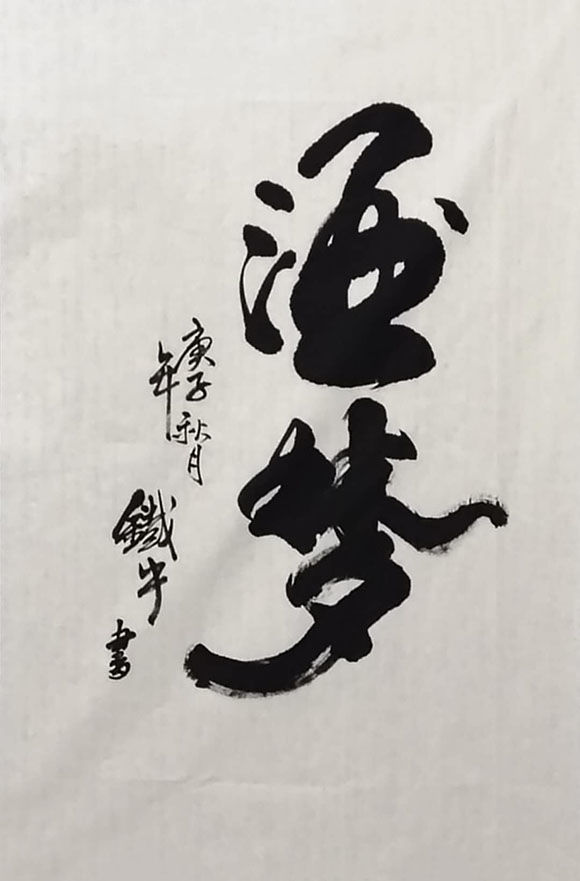 酒梦
庚子年秋月
鐵牛
書